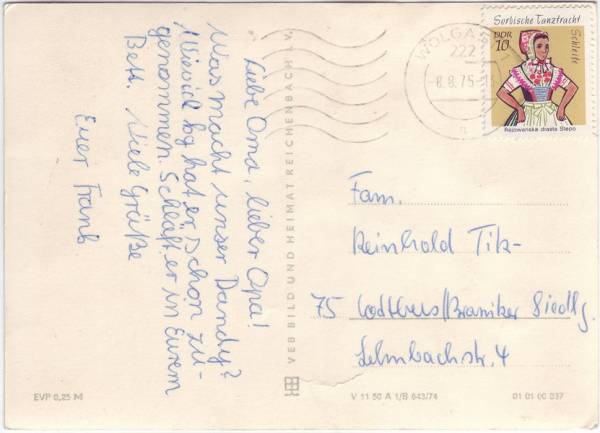 Liebe Oma, lieber Opa!
Was macht unser Dandy?
Wieviel kg hat er schon zu-
genommen. Schläft er in Eurem
Bett. Viele Grüße
Euer Frank
VEB BILD UND HEIMAT REICHENBACH i.V.
Sorbische Tanztracht
DDR
10
Schleife
Rejowanska drasta Slepo
WOLGA
222
-8.8.75-
a
Fam.
Reinhold Tik-
75 Cottbus/Branitzer Siedlg.
Lehmbachstr. 4
EVP 0,25 M
V 11 50 A 1/B 643/74
01 01 06 037